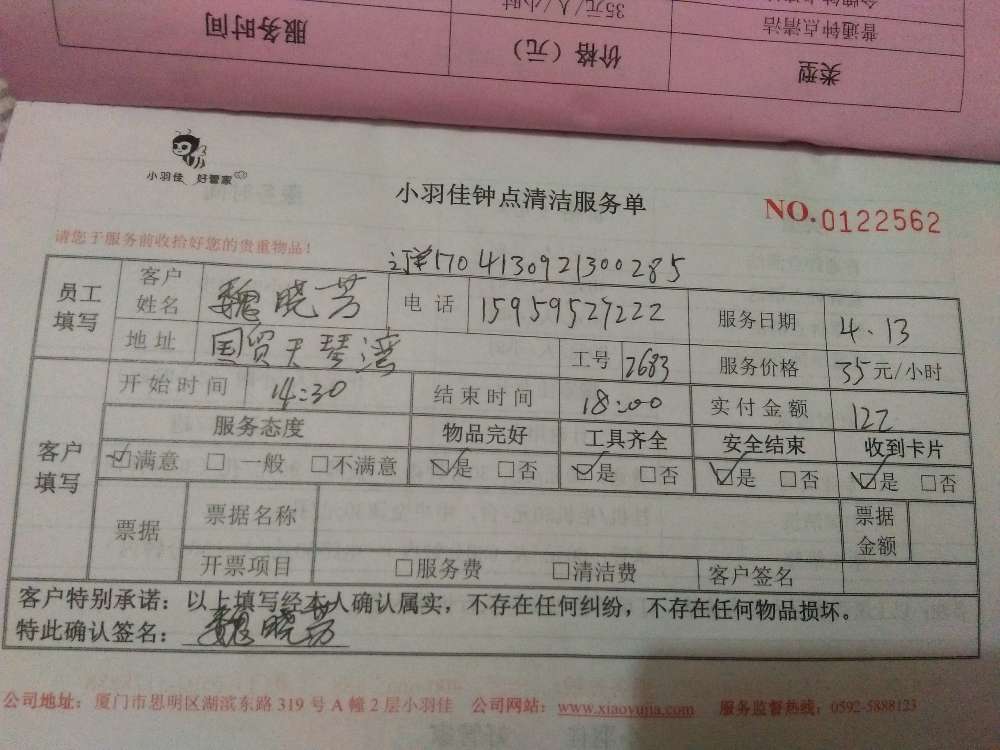 服务时间 价格（元） 类型
35元/人/小时 普通钟点清洁
小羽佳 好管家
小羽佳钟点清洁服务单 NO.0122562
请您于服务前收拾好您的贵重物品！
订单1704130921300285
员工填写 客户姓名 魏晓芳 电话 15959527222 服务日期 4.13
地址 国贸天琴湾 工号 2683 服务价格 35元/小时
客户填写 开始时间 14:30 结束时间 18:00 实付金额 122
服务态度 物品完好 工具齐全 安全结束 收到卡片
☑满意 □一般 □不满意 ☑是 □否 ☑是 □否 ☑是 □否 ☑是 □否
票据 票据名称 票据金额
开票项目 □服务费 □清洁费 客户签名
客户特别承诺：以上填写经本人确认属实，不存在任何纠纷，不存在任何物品损坏。
特此确认签名：魏晓芳
公司地址：厦门市思明区湖滨东路 319 号 A 幢 2 层小羽佳 公司网站：www.xiaoyujia.com 服务监督热线：0592-5888123